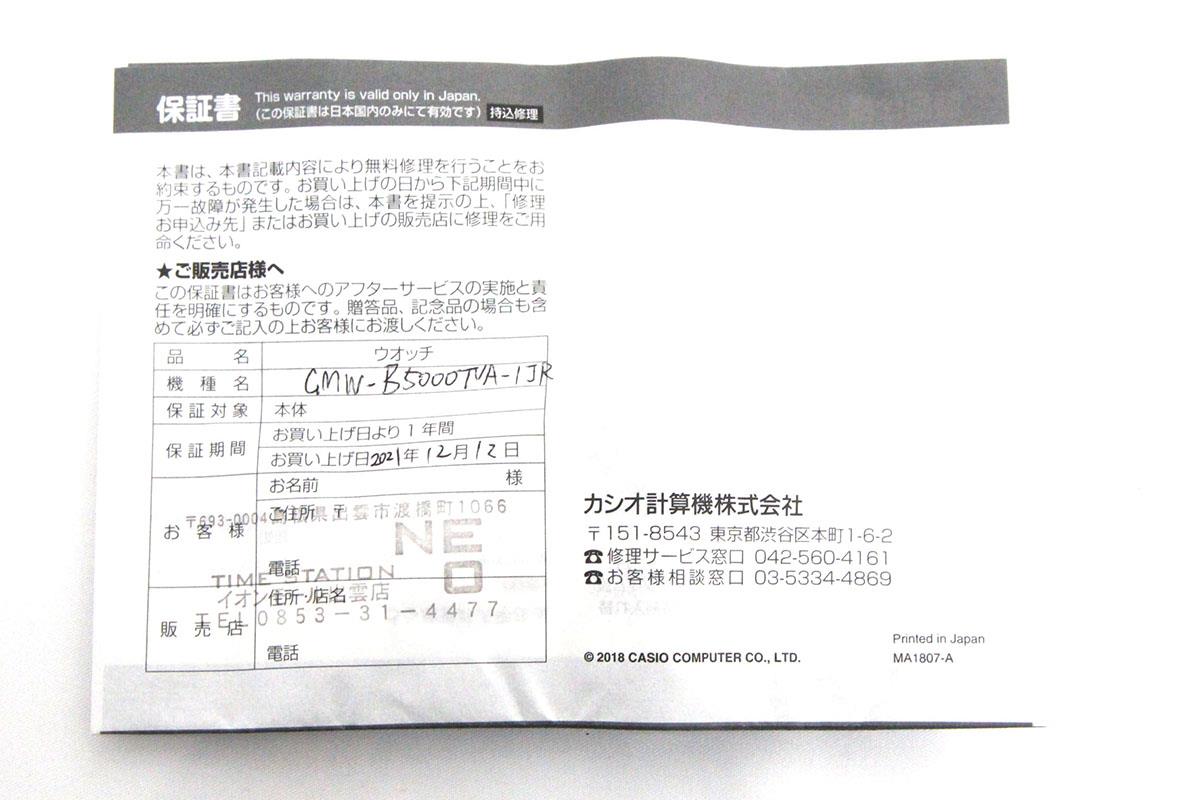 保証書
This warranty is valid only in Japan.
(この保証書は日本国内のみにて有効です) 持込修理
本書は、本書記載内容により無料修理を行うことをお
約束するものです。お買い上げの日から下記期間中に
万一故障が発生した場合は、本書を提示の上、「修理
お申込み先」またはお買い上げの販売店に修理をご用
命ください。
★ご販売店様へ
この保証書はお客様へのアフターサービスの実施と責
任を明確にするものです。贈答品、記念品の場合も含
めて必ずご記入の上お客様にお渡しください。
品名 ウオッチ
機種名 GMW-B5000TVA-1JR
保証対象 本体
保証期間 お買い上げ日より1年間
お買い上げ日2021年12月12日
お客様 お名前 様
ご住所 〒
〒693-0004 島根県出雲市渡橋町1066
NEO
電話
TIME STATION
販売店 住所・店名
イオンモール出雲店
TEL 0853-31-4477
電話
カシオ計算機株式会社
〒151-8543 東京都渋谷区本町1-6-2
☎修理サービス窓口 042-560-4161
☎お客様相談窓口 03-5334-4869
Printed in Japan
© 2018 CASIO COMPUTER CO., LTD.
MA1807-A